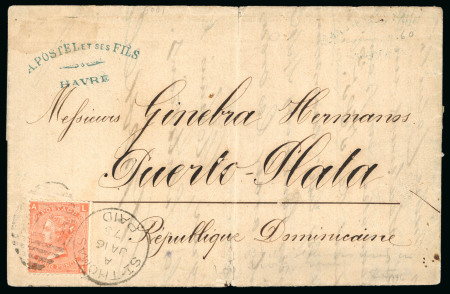 A. POSTEL ET SES FILS
HAVRE
Messieurs Ginebra Hermanos
Puerto-Plata
République Dominicaine
ST. THOMAS
PAID
A
JA 16